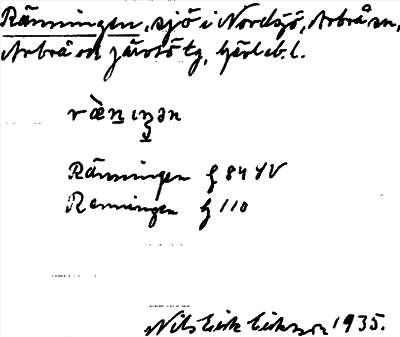 Ränningen, sjö i Nordsjö, Arbrå sn,
Arbrå och Järvsö tg, Gävleb. l.
rä̀nıŋən
Ränningen g 84 SV
Renningen g 110
Nils Erik Eriksson 1935.